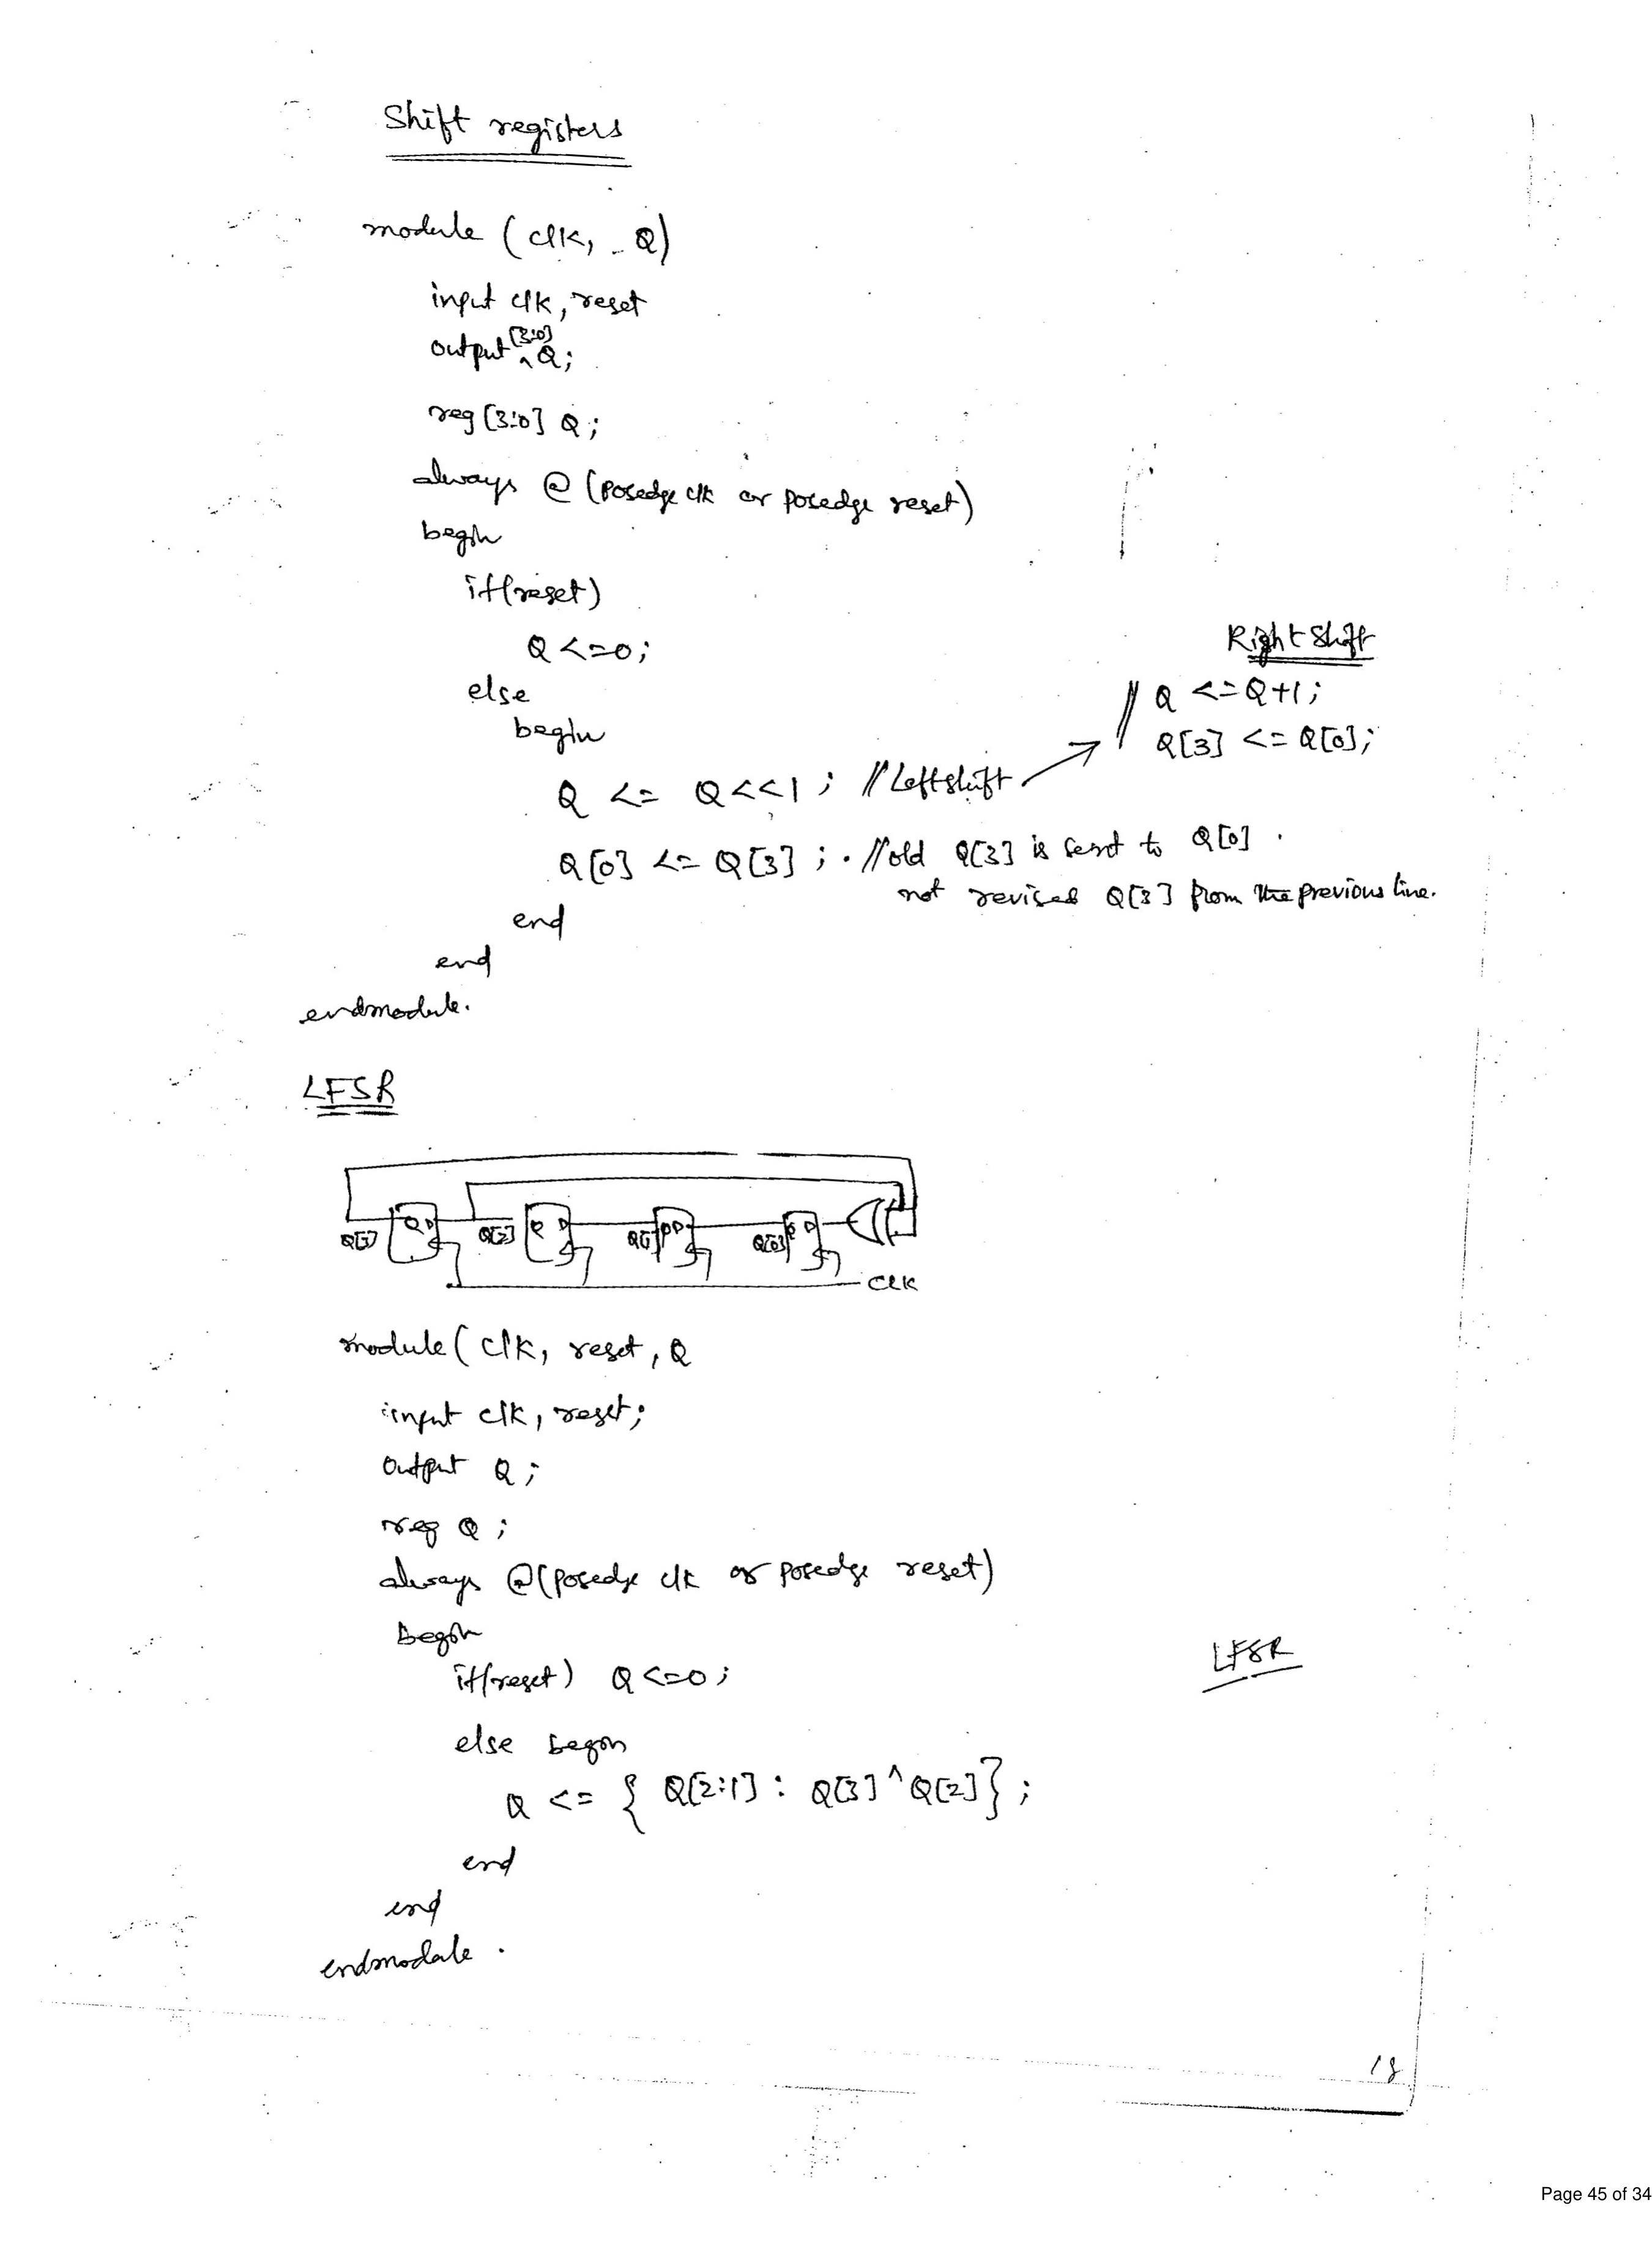 Shift registers
module (clk, _ Q)
input clk, reset
output [3:0] Q;
reg [3:0] Q;
always @ (posedge clk or posedge reset)
begin
if(reset)
Q <=0;
else
begin
Right Shift
// Q <=Q+1;
Q[3] <= Q[0];
Q <= Q<<1 ; //Leftshift
Q[0] <= Q[3] ; . //old Q[3] is sent to Q[0] .
not revised Q[3] from the previous line.
end
end
endmodule.
LFSR
Q[3] Q D Q[2] Q D Q[1] Q D Q[0] Q D
CLK
module( clk, reset, Q
input clk, reset;
output Q ;
reg Q ;
always @(posedge clk or posedge reset)
begin
if(reset) Q <=0 ;
LFSR
else begin
Q <= { Q[2:1] : Q[3]^Q[2]} ;
end
end
endmodule .
18
Page 45 of 34